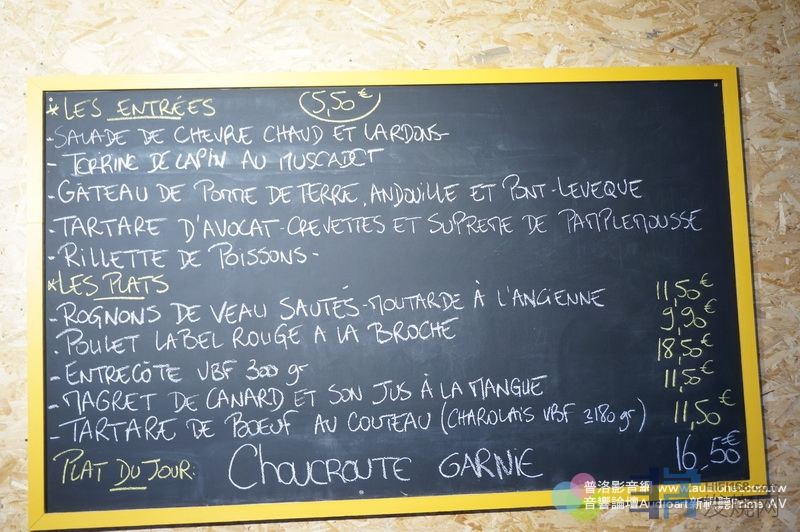 *LES ENTRÉES 5,50€
-SALADE DE CHEVRE CHAUD ET LARDONS-
- TERRINE DE LAPIN AU MUSCADET
-GÂTEAU DE POMME DE TERRE, ANDOUILLE ET PONT-LEVEQUE
-TARTARE D'AVOCAT-CREVETTES ET SUPREME DE PAMPLEMOUSSE
-RILLETTE DE POISSONS-
*LES PLATS
-ROGNONS DE VEAU SAUTÉS-MOUTARDE À L'ANCIENNE 11,50€
.POULET LABEL ROUGE A LA BROCHE 9,90€
-ENTRECÔTE VBF 300 gr 18,50€
-MAGRET DE CANARD ET SON JUS À LA MANGUE 11,50€
-TARTARE DE BOEUF AU COUTEAU (CHAROLAIS VBF ±180 gr) 11,50€
PLAT DU JOUR: CHOUCROUTE GARNIE 16,50€
普洛影音網 www.audionet.com.tw
音響論壇Audioart新視聽Prime AV